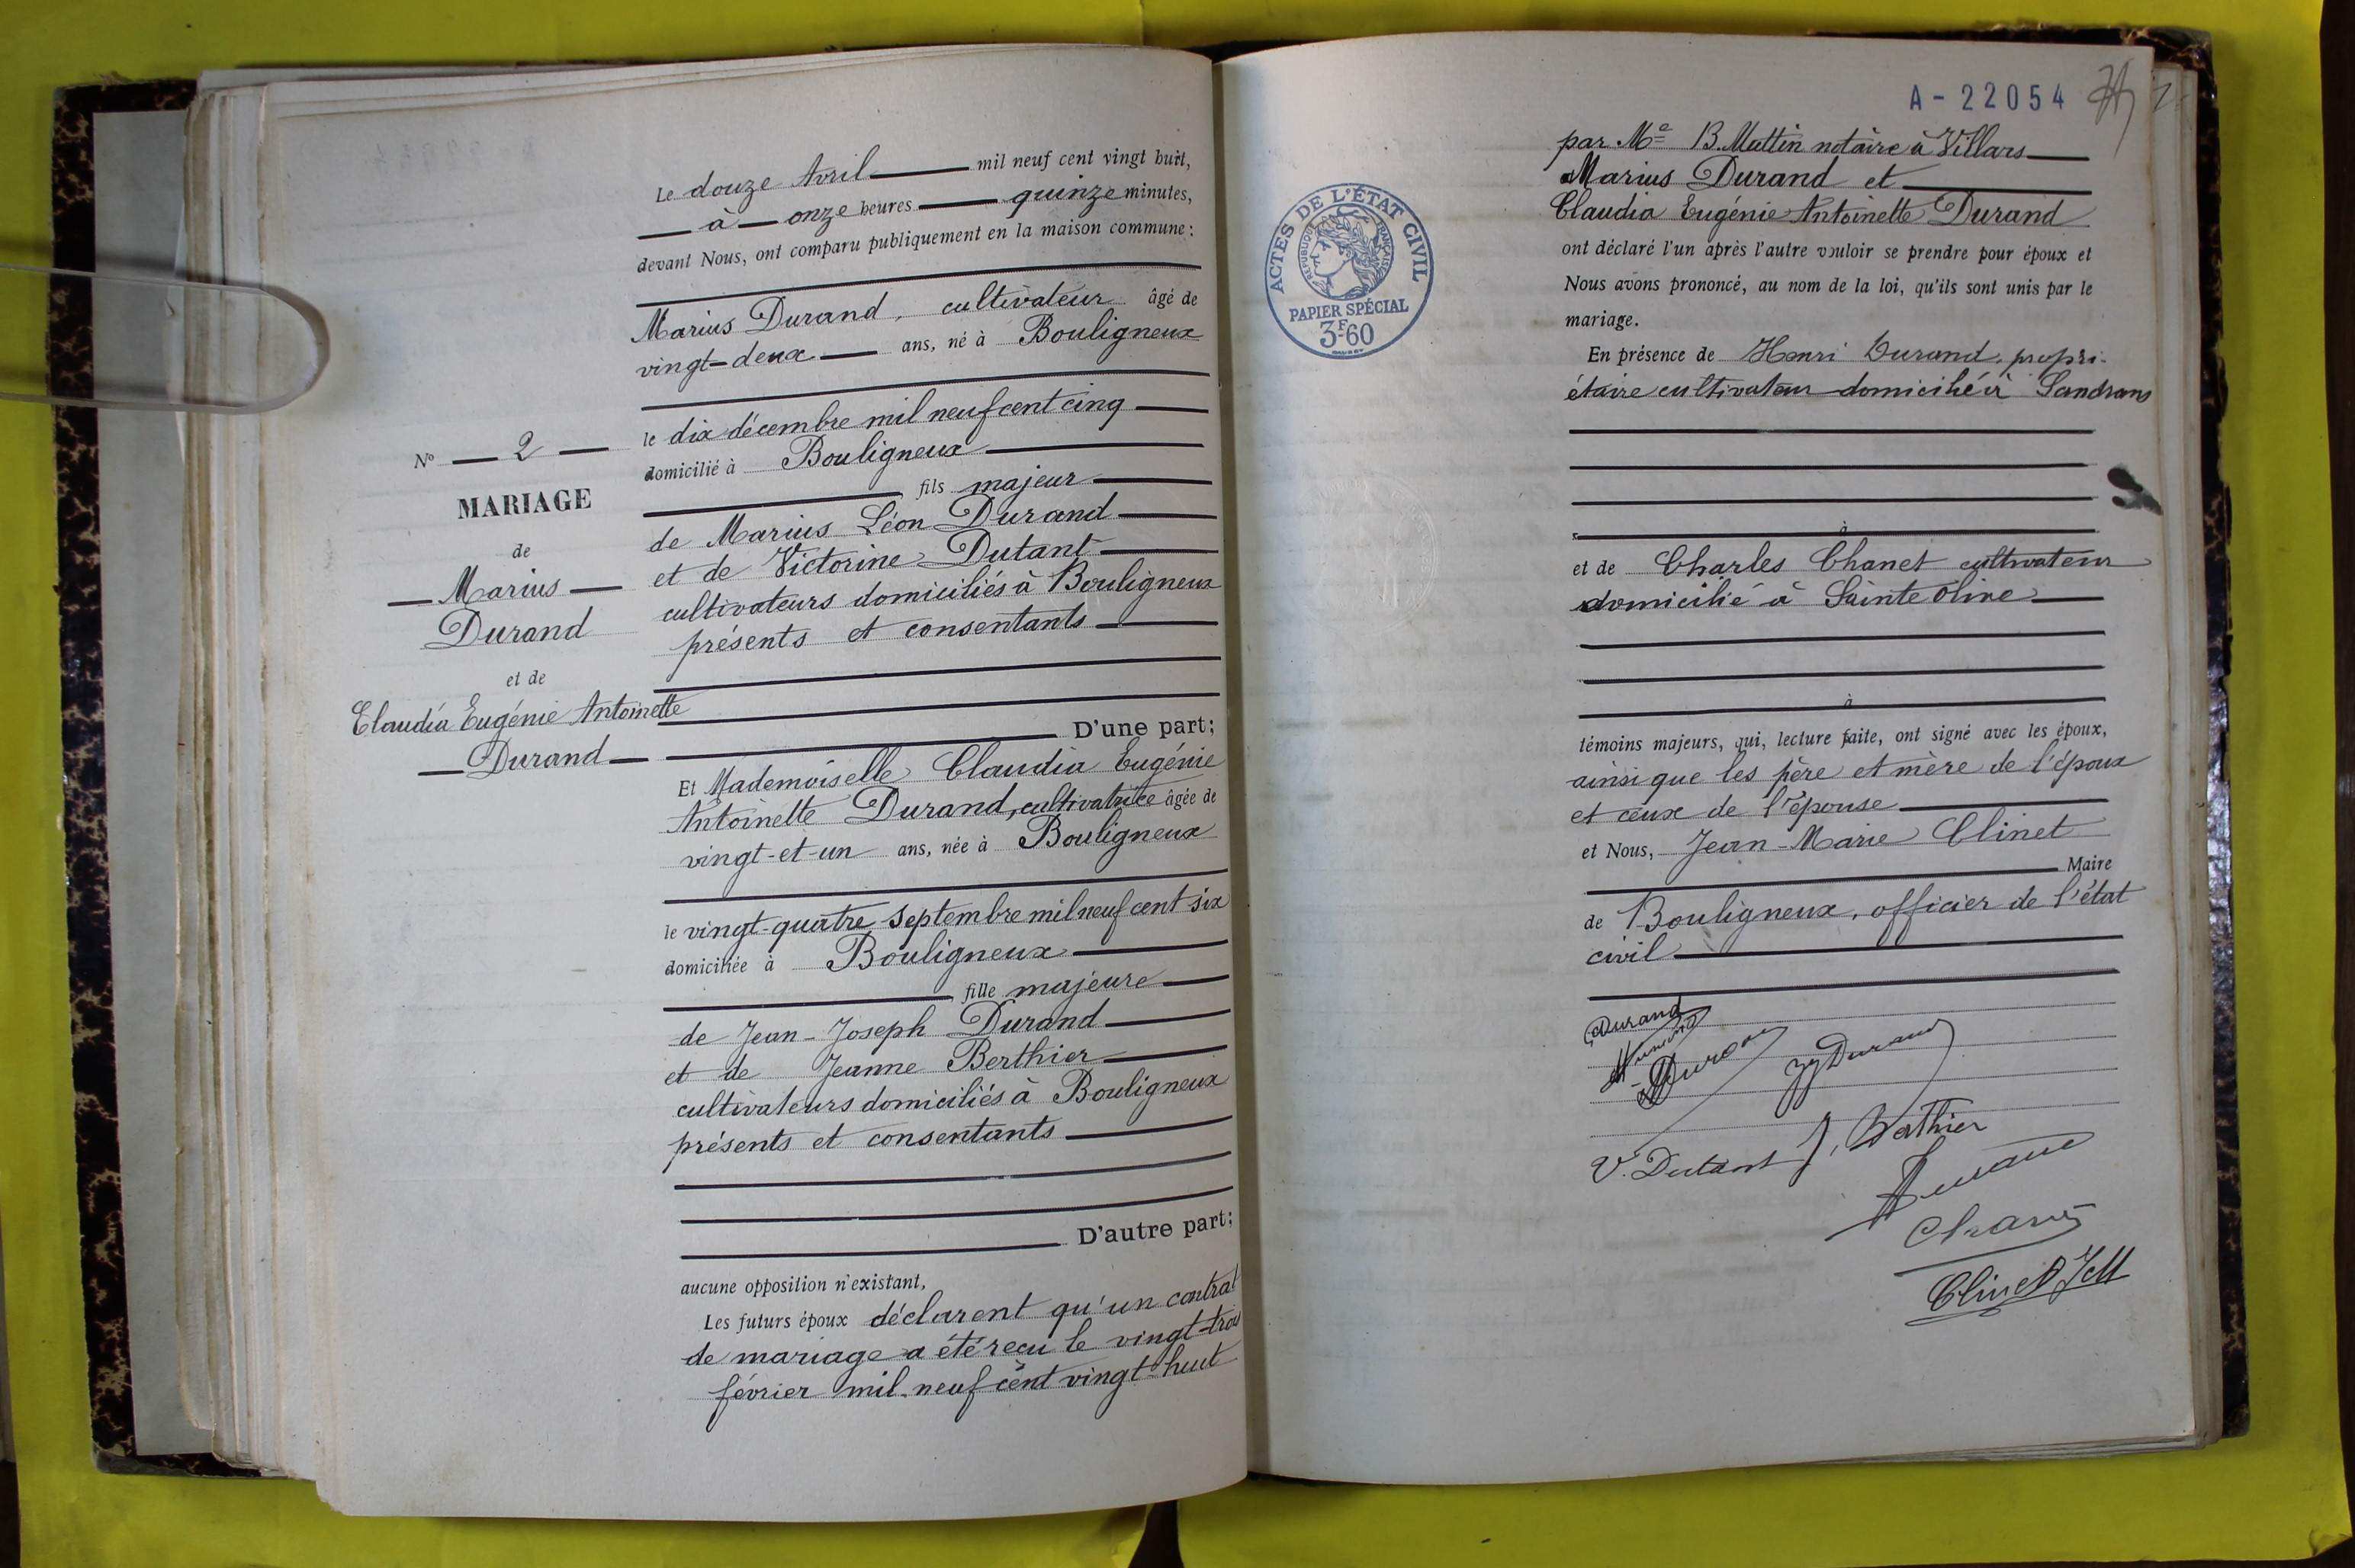 N° 2
MARIAGE
de
Marius
Durand
et de
Claudia Eugénie Antoinette
Durand
Le douze Avril mil neuf cent vingt huit,
à onze heures quinze minutes,
devant Nous, ont comparu publiquement en la maison commune :
Marius Durand, cultivateur âgé de
vingt-deux ans, né à Bouligneux
le dix décembre mil neuf cent cinq
domicilié à Bouligneux
fils majeur
de Marius Léon Durand
et de Victorine Dutant
cultivateurs domiciliés à Bouligneux
présents et consentants
D'une part;
Et Mademoiselle Claudia Eugénie
Antoinette Durand, cultivatrice âgée de
vingt-et-un ans, née à Bouligneux
le vingt-quatre septembre mil neuf cent six
domiciliée à Bouligneux
fille majeure
de Jean-Joseph Durand
et de Jeanne Berthier
cultivateurs domiciliés à Bouligneux
présents et consentants
D'autre part;
aucune opposition n'existant,
Les futurs époux déclarent qu'un contrat
de mariage a été reçu le vingt-trois
février mil neuf cent vingt-huit
A-22054
ACTES DE L'ÉTAT CIVIL
RÉPUBLIQUE FRANÇAISE
PAPIER SPÉCIAL
3F60
par Me B. Muttin notaire à Villars
Marius Durand et
Claudia Eugénie Antoinette Durand
ont déclaré l'un après l'autre vouloir se prendre pour époux et
Nous avons prononcé, au nom de la loi, qu'ils sont unis par le
mariage.
En présence de Henri Durand, propri-
étaire cultivateur domicilié à Sandrans
à
et de Charles Chanet cultivateur
domicilié à Sainte Olive
à
témoins majeurs, qui, lecture faite, ont signé avec les époux,
ainsi que les père et mère de l'époux
et ceux de l'épouse
et Nous, Jean-Marie Clinet
Maire
de Bouligneux, officier de l'état
civil
Durand
Durand
JJ Durand
V. Dutant J. Berthier
Clinet JM